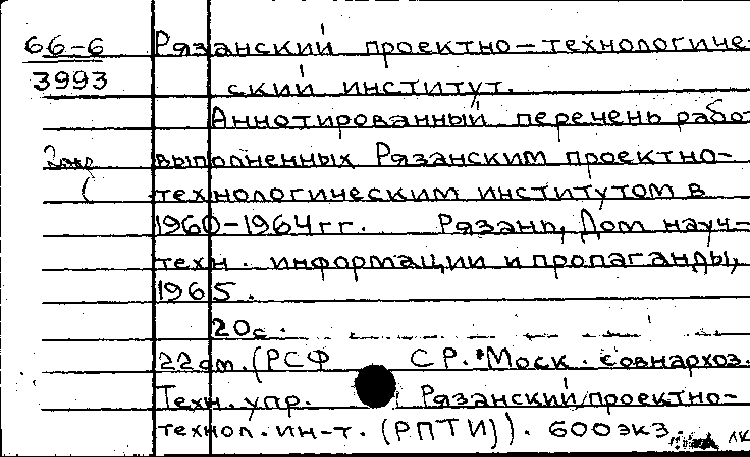 66-6
3993
Рязанский проектно-технологиче-
ский институт.
Аннотированный перечень работ
выполненных Рязанским проектно-
технологическим институтом в
1960-1964гг. Рязань, Дом науч-
техн. информации и пропаганды,
1965.
20с.
22см. (РСФ СР. Моск. совнархоз.
Техн. упр. Рязанский проектно-
технол. ин-т. (РПТИ)). 600экз.